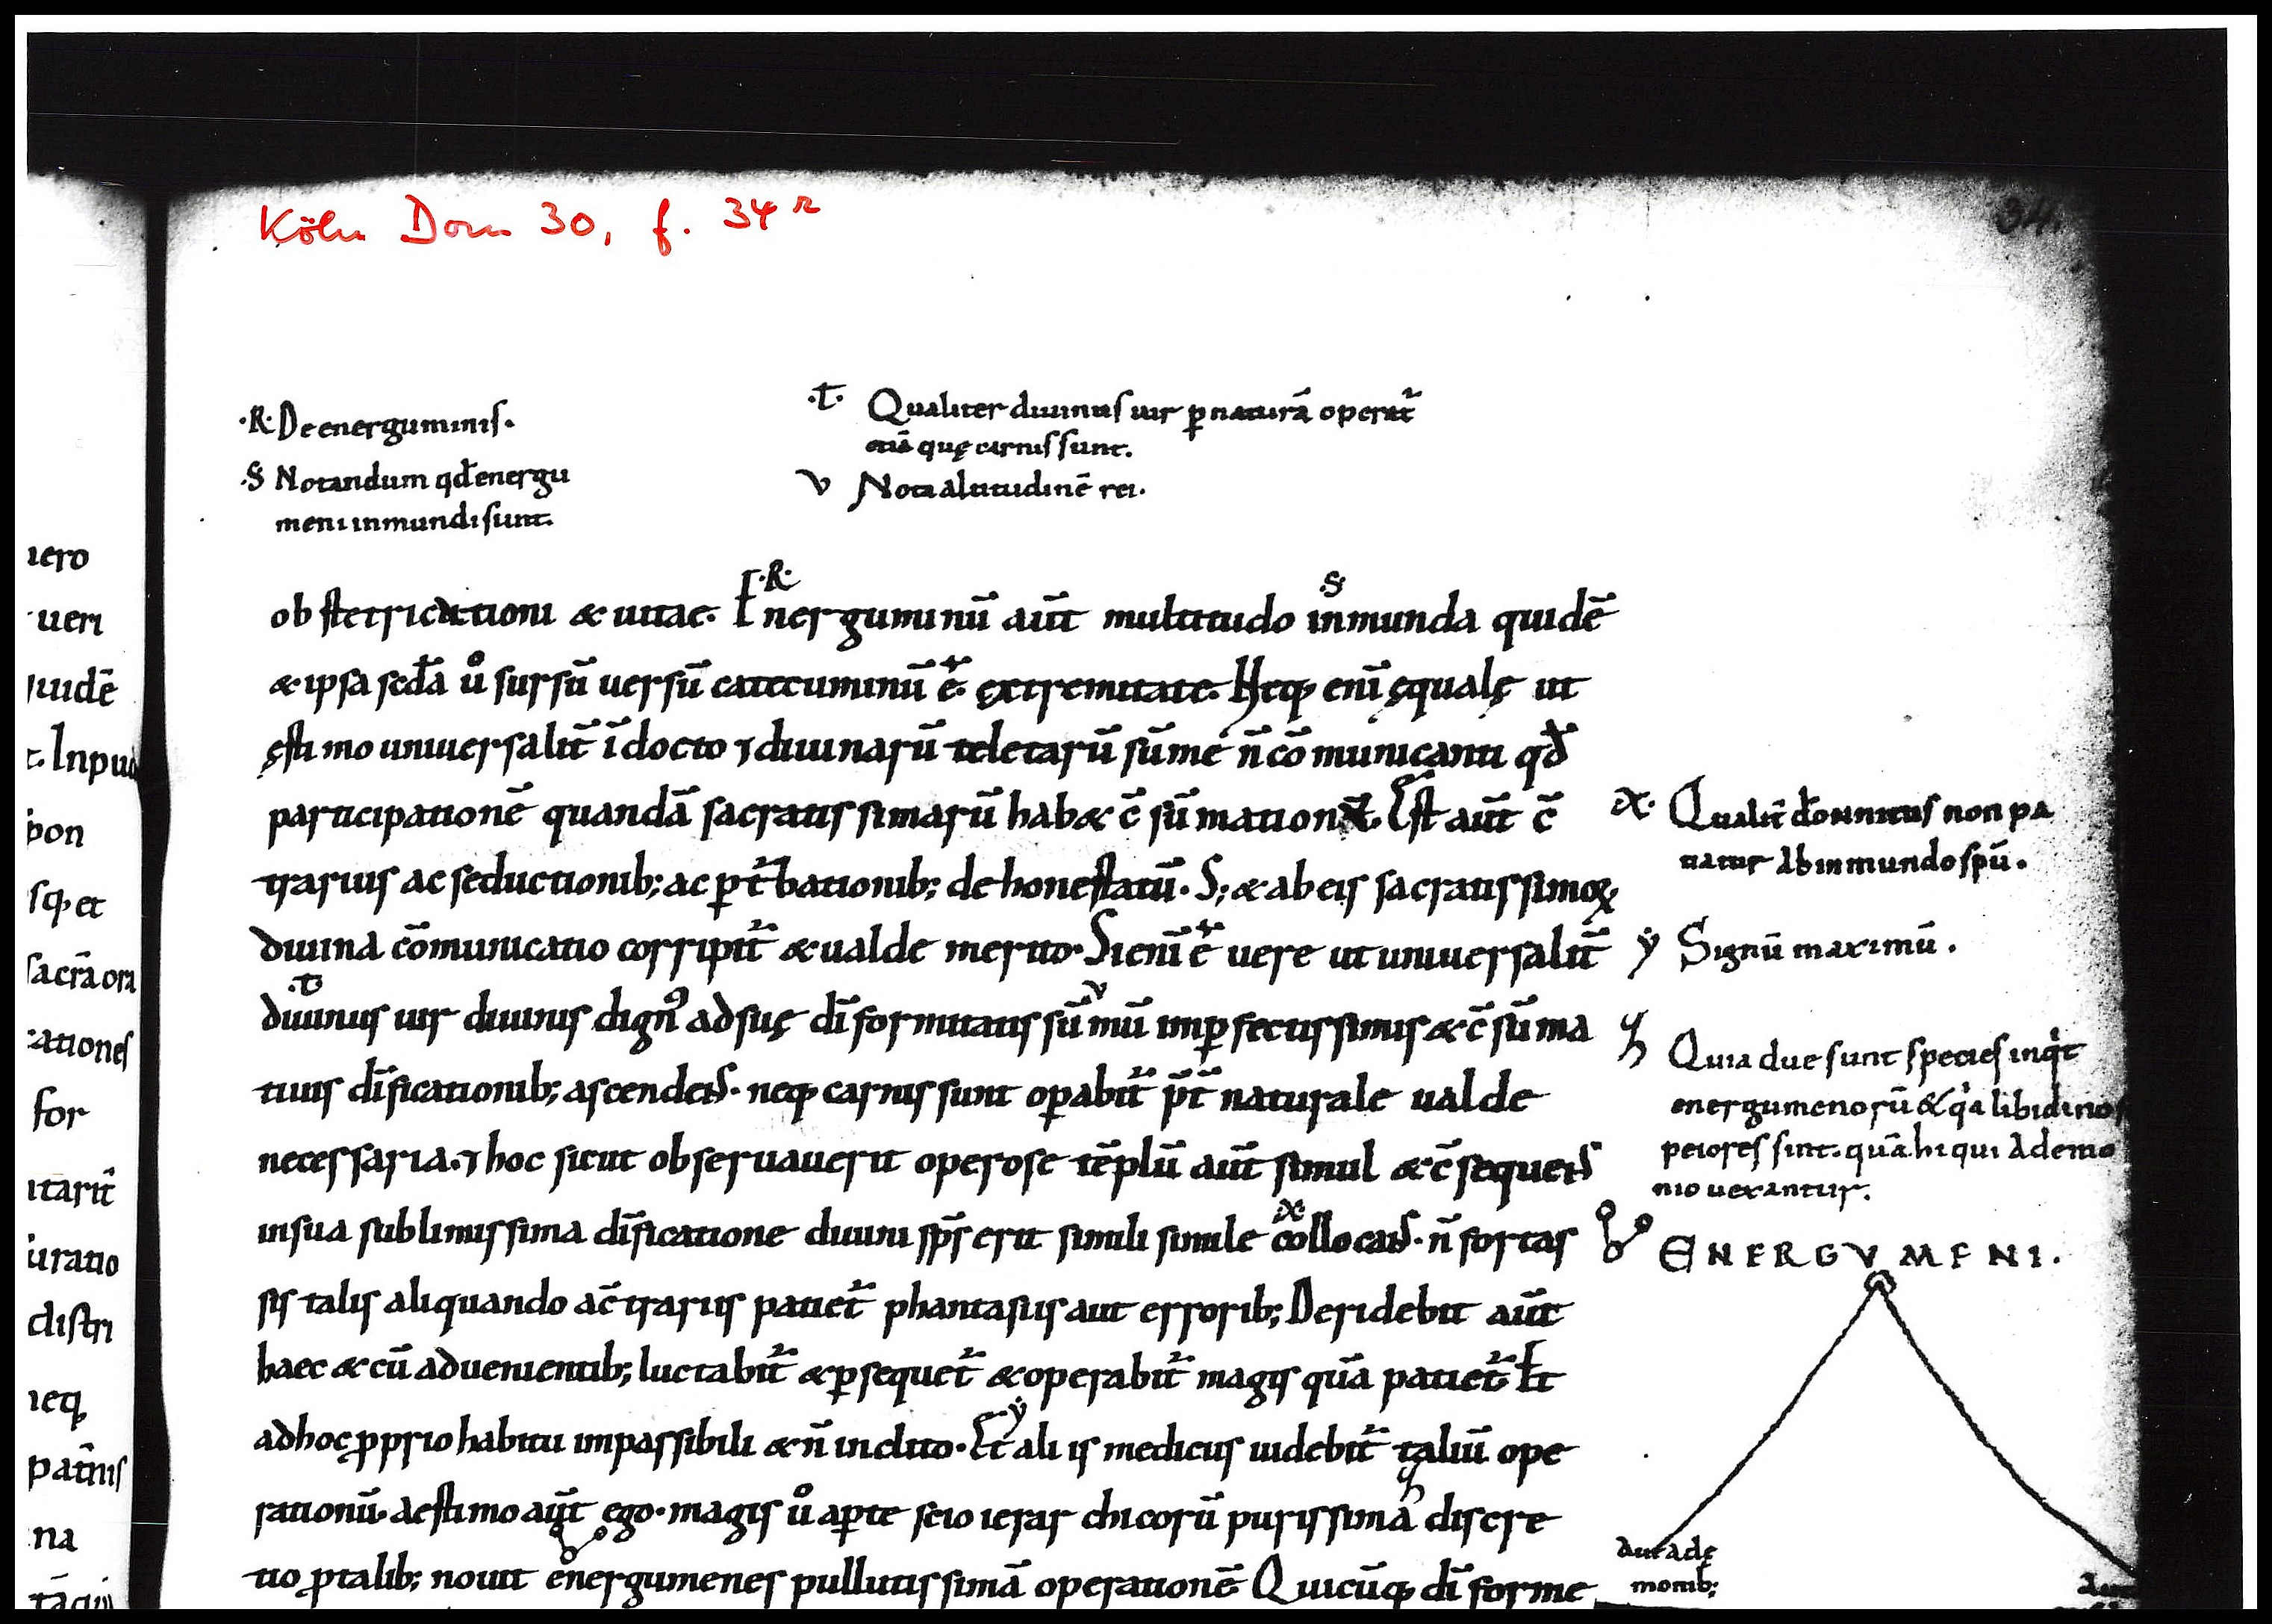 Köln Dom 30, f. 34r
34
·R· De energuminis.
·§ Notandum qđ energu
meni inmundi sunt.
·t· Qualiter diuinus uir p̱ naturā operat᷑
etiā quę carnis sunt.
v Nota altitudinē rei.
uero
ueri
quidē
t. Inpua
pon
sq; et
sacrā ora
rationes
for
itarit᷑
uratio
distri
neq;
pat̄nis
na
·R· §
obstetricationi & uitae. Energuminū aūt multitudo inmunda quidē
& ipsa sedā ů sursū uersū catecuminū ē÷ extremitate. Neq; enī ęqualę ut
ęstimo uniuersalit᷑ īdocto ⁊ diuinarū teletarū sūme n̄ cōmunicanti qđ
participationē quandā sacratissimarū hab& c̄sūmationū. Est aūt c̄
trariis ac seductionib; ac p̱t᷑bationib; de honestatū. S; & ab eis sacratissimoꝝ
diuina cōmunicatio corripit᷑ & ualde merito. Si enī ē÷ uere ut uniuersalit᷑
·t· v
diuinus uir diuinis dignꝰ ad suę dīformitatis sūmū imp̱fectissimis & c̄sūma
tiuis dīficationib; ascendens. neq; carnis sunt op̱abit᷑ p̄t̄ naturale ualde
necessaria. ⁊ hoc sicut obseruauerit operose tēplū aūt simul & c̄sequens
x
insua sublimissima dīficatione diuini sp̄s erit simili simile collocans. n̄ fortas
sis talis aliquando a c̄trariis patiet᷑ phantasiis aut errorib; Deridebit aūt
haec & cū aduenientib; luctabit᷑ & p̱sequet᷑ & operabit᷑ magis quā patiet᷑ Et
ẏ
ad hoc p̱prio habitu impassibili & n̄ inclito. Et aliis medicus uidebit᷑ taliū ope
rationū. aestimo aūt ego. magis ů ap̱te scio ierarchicorū purissima discre
tio p̱ talib; nouit energumenes pullutissimā operationē Quicūq; dīforme
·x· Qualit᷑ domnitus non pa
tiatur ab inmundo spū.
ẏ Signū maximū.
Quia due sunt species inqͥt
energumenorū & qͥa libidinos
peiores sint. quā. hi qui a demo
nio uexantur.
ENERGVMENI.
aut a dę
monib;